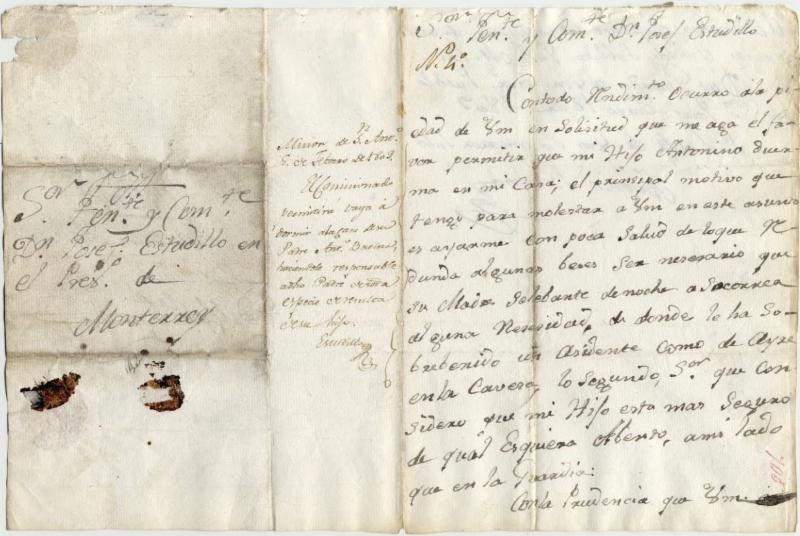 Sor. Ten.te y Com.te
Dn. Josef. Estudillo en
el Pres.o de
Monterrey
Micion de S.n Anto.
6. de Febrero de 1809
El Comicionado
permitirá vaya á
dormir ala casa de su
Padre Anto.
haciendole responsable
a dho Padre de toda
especie de resulta
de su hijo.
Estudillo
Sor. Ten.te y Com.te Dn. Josef Estudillo
Contodo Rndim.to Ocurro ála pi
edad de Vm en Solisitud que me aga el fa-
vor permitir que mi Hijo Antonino duer-
ma en mi Casa; el principal motivo que
tengo para molestar a Vm en este asunto
es ayarme con poca Salud de loque R
dunda algunas beses Ser nesesario que
su Madre Selebante de noche a Socorrer
alguna Nesesidad, de donde le ha So-
brebenido un Asidente Como de Ayre
enla Cavesa, lo Segundo, S.or que Con
sidero que mi Hijo esta mas Seguro
de qual Esquiera Abento, ami lado
que en la Guardia:
Conla Prudencia que Vm.